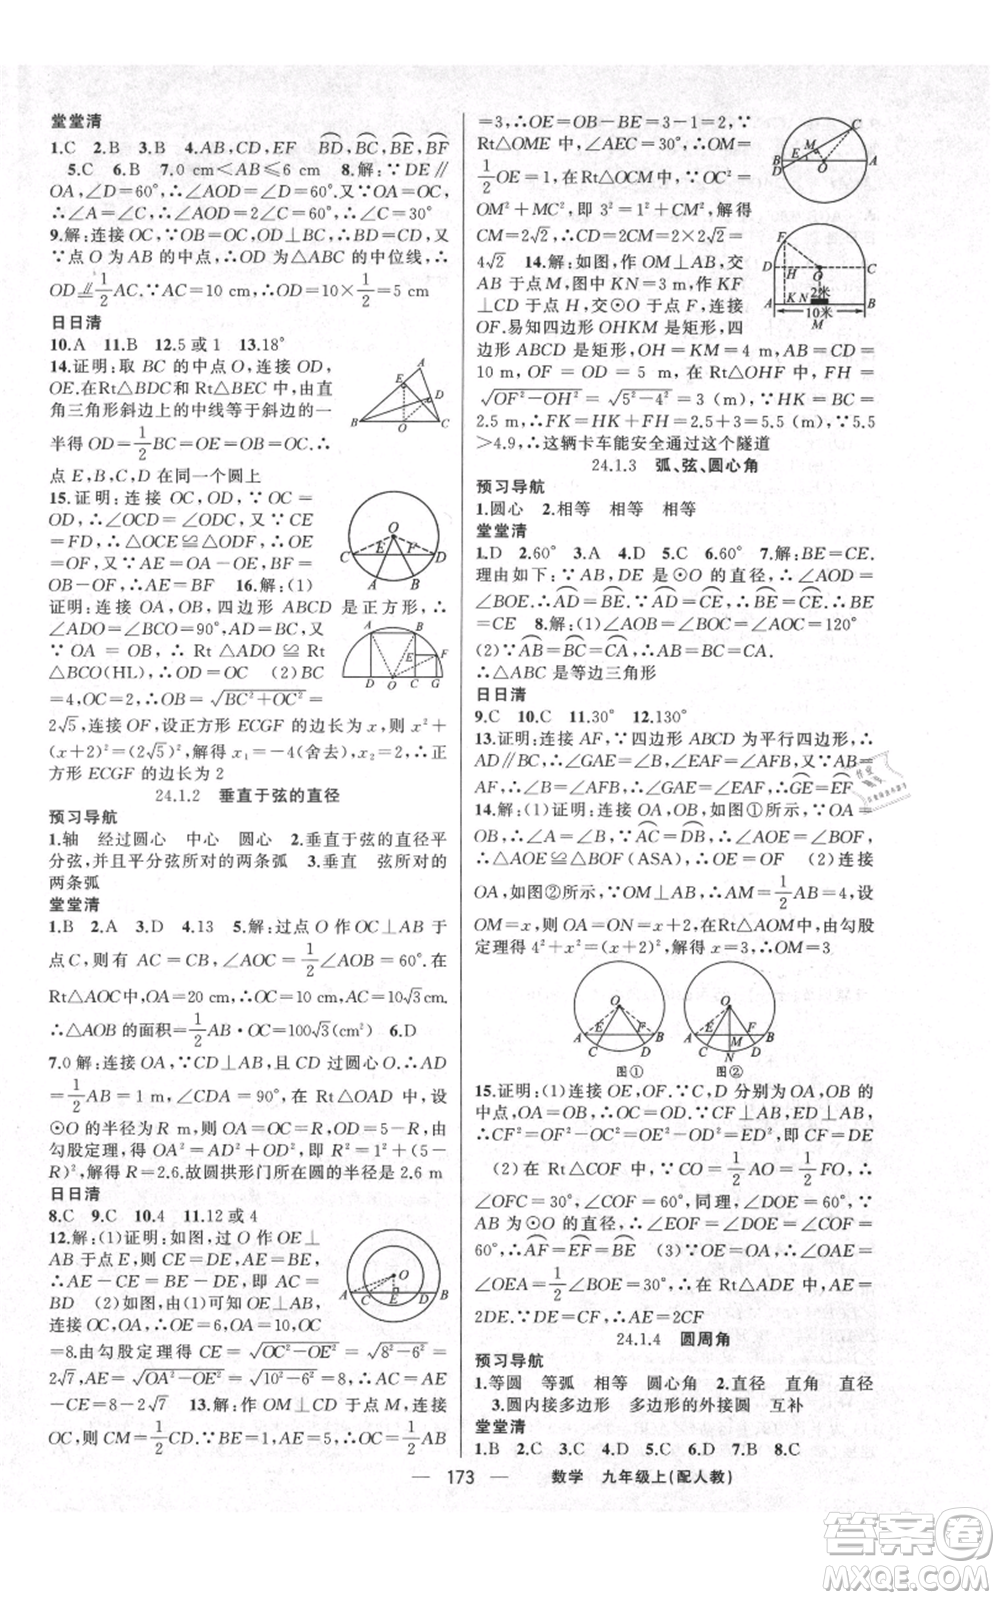 堂堂清
1.C 2.B 3.B 4.AB,CD,EF BD,BC,BE,BF
5.C 6.B 7.0 cm<AB≤6 cm 8.解:∵DE∥
OA,∠D=60°,∴∠AOD=∠D=60°.又∵OA=OC,
∴∠A=∠C,∴∠AOD=2∠C=60°,∴∠C=30°
9.解:连接 OC,∵OB=OC,OD⊥BC,∴BD=CD,又
∵点 O 为 AB 的中点,∴OD 为△ABC 的中位线,∴
OD∥=1/2 AC.∵AC=10 cm,∴OD=10×1/2=5 cm
日日清
10.A 11.B 12.5 或 1 13.18°
14.证明:取 BC 的中点 O,连接 OD,
OE.在Rt△BDC和Rt△BEC中,由直
角三角形斜边上的中线等于斜边的一
半得 OD=1/2 BC=OE=OB=OC,∴
点 E,B,C,D 在同一个圆上
15.证明:连接 OC,OD,∵OC=
OD,∴∠OCD=∠ODC,又∵CE
=FD,∴△OCE≌△ODF,∴OE=
OF,∴AE=BF 16.解:(1)
证明:连接 OA,OB,四边形 ABCD 是正方形,∴
∠ADO=∠BCO=90°,AD=BC,又
∵OA=OB,∴Rt△ADO≌Rt
△BCO(HL),∴OD=OC (2)BC
=4,OC=2,∴OB=√(BC²+OC²)=
2√5,连接 OF,设正方形 ECGF 的边长为 x,则 x²+
(x+2)²=(2√5)²,解得 x₁=-4(舍去),x₂=2,∴正
方形 ECGF 的边长为 2
24.1.2 垂直于弦的直径
预习导航
1.轴 经过圆心 中心 圆心 2.垂直于弦的直径平
分弦,并且平分弦所对的两条弧 3.垂直 弦所对的
两条弧
堂堂清
1.B 2.A 3.D 4.13 5.解:过点 O 作 OC⊥AB 于
点 C,则有 AC=BC,∠AOC=1/2∠AOB=60°.在
Rt△AOC中,OA=20 cm,∴OC=10 cm,AC=10√3cm.
∴△AOB 的面积=1/2 AB·OC=100√3(cm²) 6.D
7.0 解:连接 OA,∵CD⊥AB,且 CD 过圆心 O,∴AD
=1/2 AB=1 m,∠CDA=90°,在 Rt△OAD 中,设
⊙O 的半径为 R,则 OA=OC=R,OD=5-R,由
勾股定理,得 OA²=AD²+OD²,即 R²=1²+(5-
R)²,解得 R=2.6.故圆拱形门所在圆的半径是 2.6 m
日日清
8.C 9.C 10.4 11.12 或 4
12.解:(1)证明:如图,过 O 作 OE⊥
AB 于点 E,则 CE=DE,AE=BE,
∴AE-CE=BE-DE,即 AC=
BD (2)如图,由(1)可知 OE⊥AB,
连接 OC,OA,∴OE=6,OC=8,OA=10
=8.由勾股定理得 CE=√(OC²-OE²)=√(8²-6²)=
2√7,AE=√(OA²-OE²)=√(10²-6²)=8,∴AC=AE
-CE=8-2√7 13.解:作 OM⊥CD 于点 M,连接
OC,则 CM=1/2 CD.∵BE=1,AE=5,∴OC=1/2 AB
=3,∴OE=OB-BE=3-1=2,∵在
Rt△OME 中,∠AEC=30°,∴OM=
1/2 OE=1,在 Rt△OCM 中,∵OC²=
OM²+MC²,即 3²=1²+CM²,解得
CM=2√2,∴CD=2CM=2×2√2=
4√2 14.解:如图,作 OM⊥AB,交
AB 于点 M,图中 KN=3 m,作 KF
⊥CD 于点 H,交⊙O 于点 F,连接
OF.易知四边形 OHKM 是矩形,四
边形 ABCD 是矩形,OH=KM=4 m,CD=AB=
10 m,OF=OD=5 m,在Rt△OHF 中,FH=
√(OF²-OH²)=√(5²-4²)=3(m),∵HK=BC=
2.5 m,∴FK=HK+FH=2.5+3=5.5(m),∵5.5
>4.9,∴这辆卡车能安全通过这个隧道
24.1.3 弧、弦、圆心角
预习导航
1.圆心 2.相等 相等 相等
堂堂清
1.D 2.60° 3.A 4.D 5.C 6.60° 7.解:BE=CE.
理由如下:∵AB,DE 是⊙O 的直径,∴∠AOD=
∠BOE.∴AD=BE.∵AD=CE,∴BE=CE,∴BE
=CE 8.解:(1)∠AOB=∠BOC=∠AOC=120°
(2)∵AB=BC=CA,∴AB=BC=CA.
∴△ABC是等边三角形
日日清
9.C 10.C 11.30° 12.130°
13.证明:连接 AF,∵四边形 ABCD 为平行四边形,∴
AD∥BC,∴∠GAE=∠B,∠EAF=∠AFB,又∵AB
=AF,∴∠B=∠AFB,∴∠GAE=∠EAF,∴GE=EF
14.解:(1)证明:连接 OA,OB,如图①所示,∵OA=
OB,∴∠A=∠B,∵AC=DB,∴∠AOE=∠BOF,
∴△AOE≌△BOF(ASA),∴OE=OF (2)连接
OA,如图②所示,∵OM⊥AB,∴AM=1/2 AB=4,设
OM=x,则 OA=ON=x+2,在Rt△AOM中,由勾股
定理得 4²+x²=(x+2)²,解得 x=3,∴OM=3
图① 图②
15.证明:(1)连接 OE,OF.∵C,D 分别为 OA,OB 的
中点,OA=OB,∴OC=OD.∵CF⊥AB,ED⊥AB,
∴CF²=OF²-OC²=OE²-OD²=ED²,即 CF=DE
(2)在 Rt△COF 中,∵CO=1/2 AO=1/2 FO,∴
∠OFC=30°,∠COF=60°,同理,∠DOE=60°,∵
AB 为⊙O 的直径,∴∠EOF=∠DOE=∠COF=
60°,∴AF=EF=BE (3)∵OE=OA,∴∠A=
∠OEA=1/2∠BOE=30°,∴在 Rt△ADE 中,AE=
2DE.∵DE=CF,∴AE=2CF
24.1.4 圆周角
预习导航
1.等圆 等弧 相等 圆心角 2.直径 直角 直径
3.圆内接多边形 多边形的外接圆 互补
堂堂清
1.B 2.C 3.C 4.D 5.C 6.D 7.B 8.C
— 173 — 数学 九年级上(配人教)
答案卷